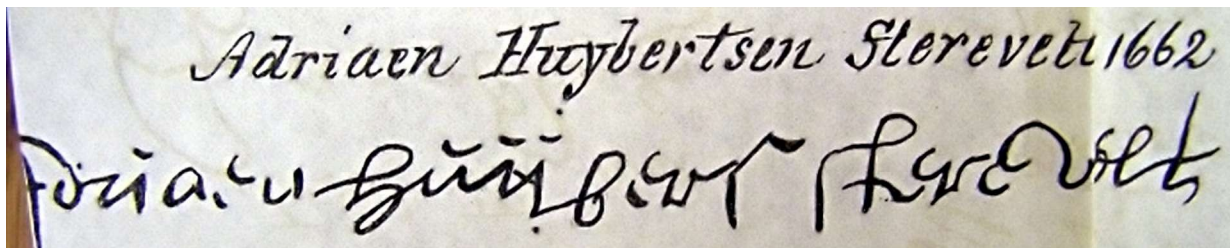 Adriaen Huybertsen Sterevelt 1662
Adriaen Huijbers Sterevelt